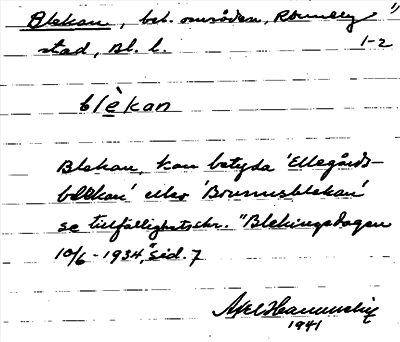 Blekan, bet. områden, Ronneby
stad, Bl. l. 1-2
blèkan
Blekan, kan betyda 'Ellegårds-
blekan' eller 'Brunnsblekan'
se tillfällighetsskr. "Blekingsdagen
10/6 - 1934," sid. 7
1941